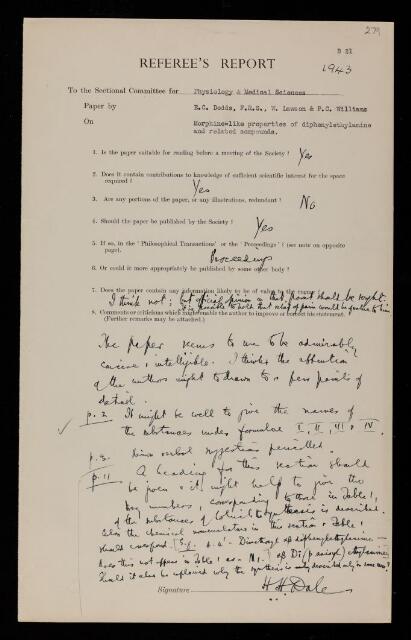 279
B 21
1943
REFEREE'S REPORT
To the Sectional Committee for Physiology & Medical Sciences
Paper by E.C. Dodds, F.R.S., W. Lawson & P.C. Williams
On Morphine-like properties of diphenylethylamine
and related compounds.
1. Is the paper suitable for reading before a meeting of the Society? Yes
2. Does it contain contributions to knowledge of sufficient scientific interest for the space
required? Yes
3. Are any portions of the paper, or any illustrations, redundant? No
4. Should the paper be published by the Society? Yes
5. If so, in the 'Philosophical Transactions' or the 'Proceedings'? (see note on opposite
page). Proceedings
6. Or could it more appropriately be published by some other body?
7. Does the paper contain any information likely to be of value to the enemy?
I think not; but official opinion on that point should be sought.
8. Comments or criticisms which might enable the author to improve or correct his statement.
(Further remarks may be attached.)
The paper seems to me to be admirably
concise & intelligible. I think the attention
of the authors might be drawn to a few points of
detail.
p. 2. It might be well to give the names of
the substances under formulae I, II, III & IV.
p. 3. Minor verbal suggestions pencilled.
p. 11 A heading for this section should
be given & it might help to give the
key numbers, corresponding to those in Table 1,
of the substances of which the synthesis is described.
Also the chemical nomenclature in this section & Table 1
should correspond. (E.g. 4.4'-
Does this not appear in Table 1 as No.
Should it also be explained why the synthesis is only described only in some cases?
Signature H. H. Dale